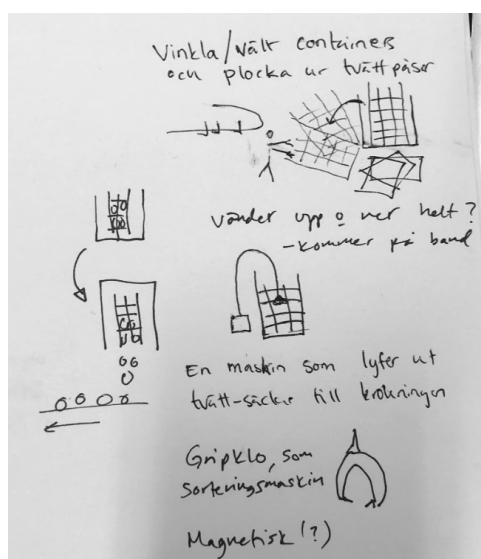 Vinkla/vält containers
och plocka ur tvättpåsar
vänder upp o ner helt?
-kommer på band
En maskin som lyfer ut
tvätt-säckar till krokningen
Gripklo, som
sorteringsmaskin
Magnetisk (?)